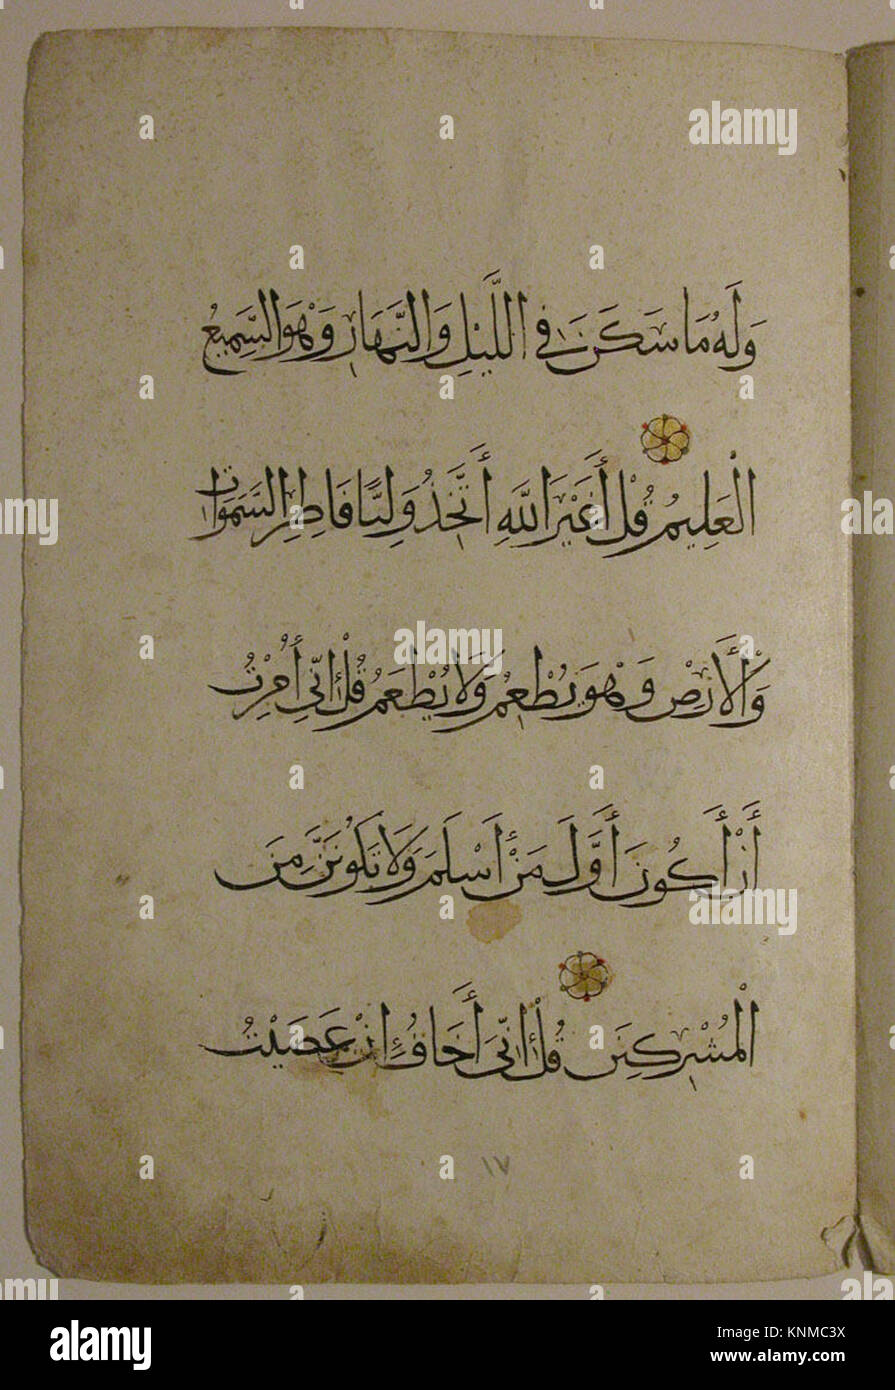 وَلَهُ مَا سَكَنَ فِي اللَّيْلِ وَالنَّهَارِ وَهْوَ السَّمِيعُ
الْعَلِيمُ قُلْ أَغَيْرَ اللَّهِ أَتَّخِذُ وَلِيًّا فَاطِرِ السَّمَوَاتِ
وَالْأَرْضِ وَهْوَ يُطْعِمُ وَلَا يُطْعَمُ قُلْ إِنِّي أُمِرْتُ
أَنْ أَكُونَ أَوَّلَ مَنْ أَسْلَمَ وَلَا تَكُونَنَّ مِنَ
الْمُشْرِكِينَ قُلْ إِنِّيَ أَخَافُ إِنْ عَصَيْتُ
١٧
alamy
Image ID: KNMC3X
www.alamy.com